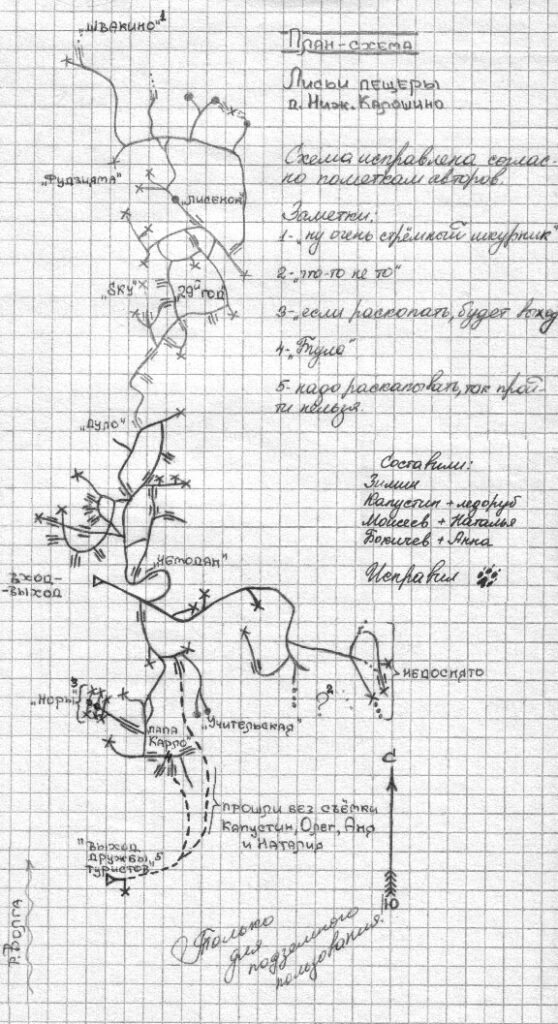 "Швакино"1
План-схема
Лисьи пещеры
д. Ниж. Карошино
Схема исправлена соглас-
но пометкам авторов.
"Фудзияма"
"Лисенок"
Заметки:
1-„ну очень стрёмный шкурник"
2-„что-то не то"
"SKY"
"29й год"
3-„если раскопать, будет выход
4-„Тула"
5-надо раскапывать, так прой-
ти нельзя.
"Дупло"
Составили:
Зимин
Капустин + ледоруб
Моисеев + Наталья
Бокичев + Анна
Исправил
"Чемодан"
Вход-
-выход
Недоснято
?2
"Норы"3
"Учительская"
Папа
Карло
С
Прошли без съёмки
Капустин, Олег, Аня
и Наталия
"Выход
дружбы
туристов"5
Ю
р. Волга
Только
для
подземного
пользования.